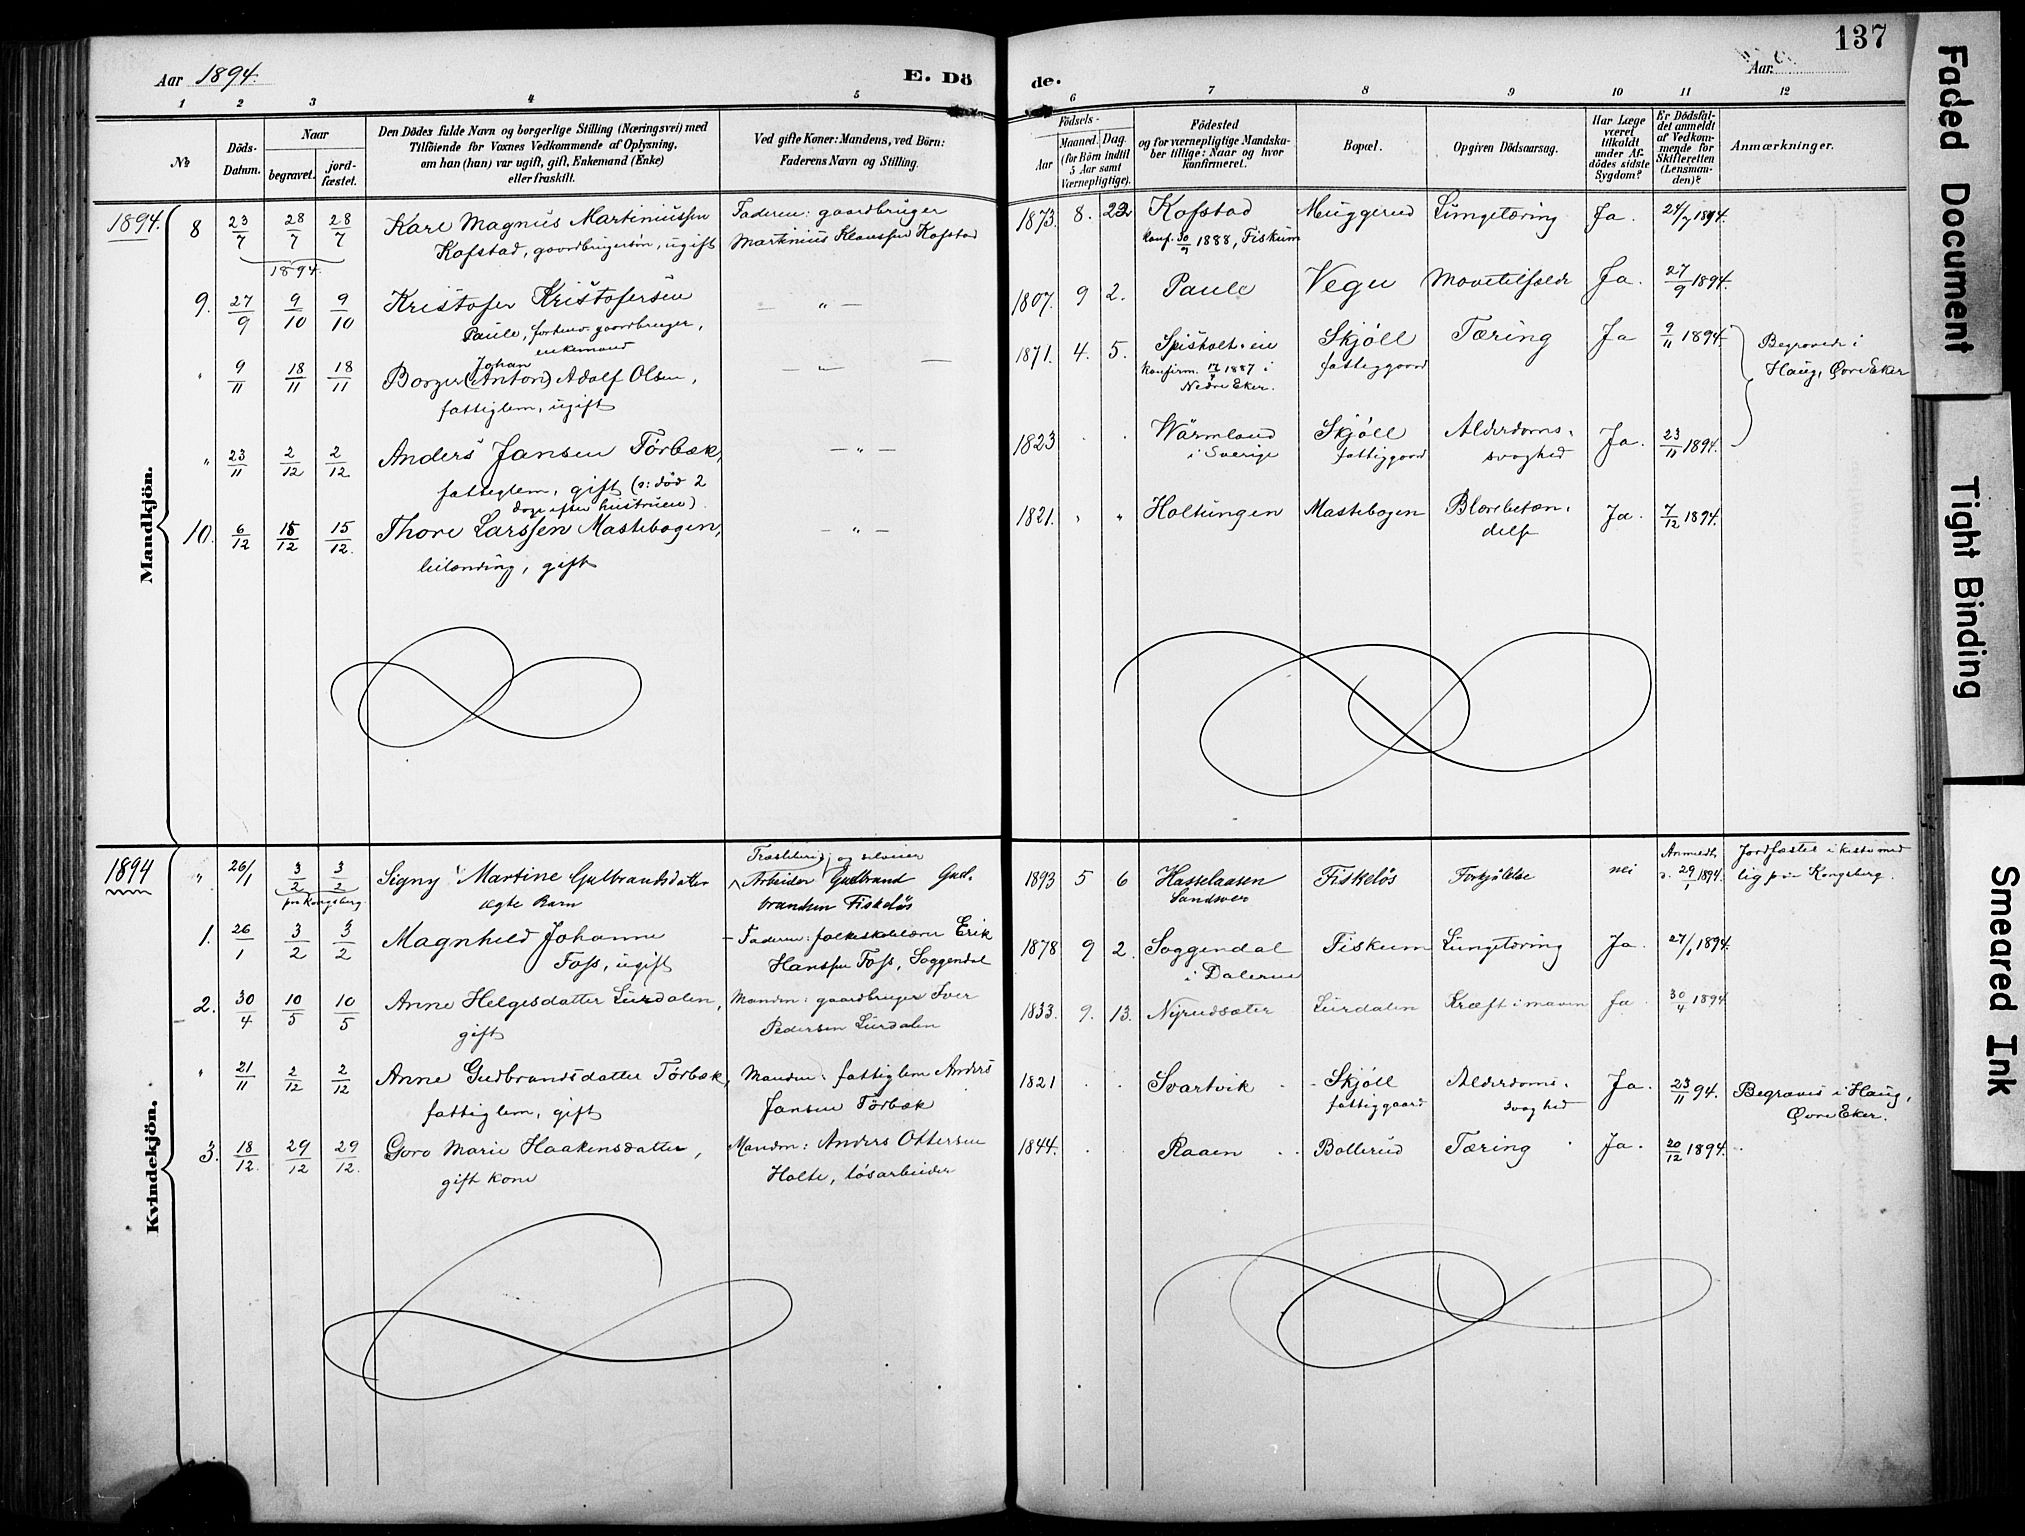 Aar 1894.
E. Dö
de.
Aar.
137
1 2 3 4 5 6 7 8 9 10 11 12
№
Döds-
Datum.
Naar
begravet.
jord-
fæstet.
Den Dödes fulde Navn og borgerlige Stilling (Næringsvei) med
Tilföiende for Voxnes Vedkommende af Oplysning,
om han (han) var ugift, gift, Enkemand (Enke)
eller fraskilt.
Ved gifte Koner: Mandens, ved Börn:
Faderens Navn og Stilling.
Födsels-
Aar
Maaned. Dag.
(for Börn indtil
5 Aar samt
Værnepligtige).
Födested
og for værnepligtige Mandska-
ber tillige: Naar og hvor
konfirmeret.
Bopæl.
Opgiven Dödsaarsag.
Har Læge
været
tilkaldt
under Af-
dödes sidste
Sygdom?
Er Dödsfal-
det anmeldt
af Vedkom-
mende for
Skifteretten
(Lensman-
den)?
Anmærkninger.
Mandkjön.
1894. 8 23/7 28/7 28/7 Karl Magnus Martiniussen Faderen: gaardbruger 1873. 8. 22 Kofstad Muggerud Lungetæring Ja. 24/7 1894.
1894. Kofstad, gaardbrugersøn, ugift Martinius Klaussen Kofstad konf. 30/9 1888, Fiskum
9. 27/9 9/10 9/10 Kristofer Kristofersen — " — 1807. 9 2. Paule Vegu Mavetilfælde Ja. 27/9 1894.
Paule, forhenv. gaardbruger,
enkemand
" 9/11 18/11 18/11 Borger (Anton) Adolf Olsen, — " — 1871. 4. 5. Spisholt. eie Skjöll Tæring Ja 9/11 1894. Begravede i
Johan
fattiglem, ugift konfirm. 1887 i fattiggaard Haug, Øvre Eker
Nedre Eker.
" 23/11 2/12 2/12 Anders Jansen Tørbæk, — " — 1823 Wärmland Skjöll Alderdoms- Ja. 23/11 1894.
fattiglem, gift (o: död 2 i Sverige fattiggaard svaghed
dage efter hustruen).
10. 6/12 15/12 15/12. Thore Larssen Mastebogen, — " — 1821. " " Holtungen Mastebogen Blærebetæn- Ja. 7/12 1894.
leilænding, gift delse
Kvindekjön.
1894 " 26/1 3/2 3/2 Signy Martine Gulbrandsdatter Arbeider Gudbrand Gud- 1893 5 6 Hasselaasen Fiskeløs Forkjølelse nei Anmeldt 29/1 1894. Jordfæstet i kiste med
paa Kongsberg. ægte Barn brandsen Fiskeløs Sandsver lig paa Kongsberg.
1. 26/1 3/2 3/2 Magnhild Johanne Faderen: folkeskolelærer Erik 1878 9 2. Soggendal Fiskum Lungetæring Ja. 27/1 1894.
Foss, ugift Hanssen Foss, Soggendal i Dalerne
2. 30/4 10/5 10/5 Anne Helgesdatter Lurdalen, Manden: gaardbruger Iver 1833. 9. 13. Nyrudsæter Lurdalen Kræft i maven Ja. 30/4 1894
gift Pedersen Lurdalen
" 21/11 2/12 2/12 Anne Gudbrandsdatter Tørbæk, Manden: fattiglem Anders 1821 Svartvik Skjöll Alderdoms- Ja. 23/11 94. Begraves i Haug,
fattiglem, gift Jansen Tørbæk fattiggaard svaghed Øvre Eker.
3. 18/12. 29/12 29/12. Goro Marie Haakensdatter, Manden: Anders Ottersen 1844. Raaen Bollerud Tæring Ja. 20/12 1894.
gift kone Holte, løsarbeider
Faded Document
Tight Binding
Smeared Ink